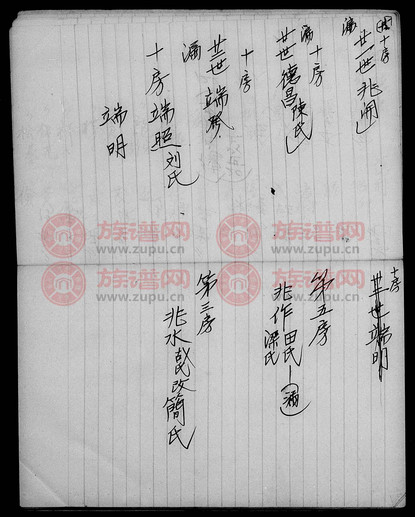 十房
廿一世兆開
滿十房
廿世德昌陳氏
十房
廿世端
滿
十房端照刘氏
端明
十房
廿世端明
第五房
兆作田氏
梁氏
滿
第三房
兆水改簡氏
族谱网
www.zupu.cn
族谱网
www.zupu.cn
族谱网
www.zupu.cn
族谱网
www.zupu.cn
族谱网
www.zupu.cn
族谱网
www.zupu.cn